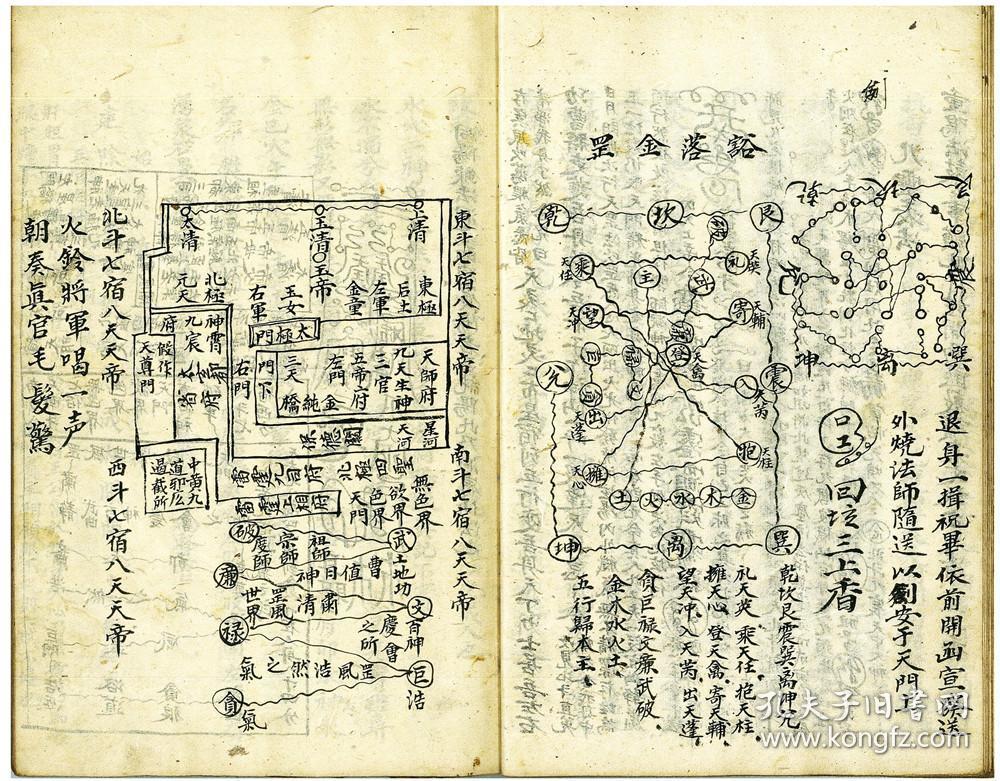 退身一揖祝畢依前開函宣
外燒法師隨送以劍安于天門上
回坛三上香
坤 离 巽
豁落金罡
乾 坎 艮
兊 震
坤 离 巽
乘 天任
礼 天英
望 天冲
寄 天輔
登 天禽
入 天芮
出 天蓬
擁 天心
抱 天柱
主
土 火 水 木 金
乾坎艮震巽离坤兊
礼天英 乘天任 抱天柱
擁天心 登天禽 寄天輔
望天冲 入天芮 出天蓬
貪巨祿文廉武破
金木水火土
五行歸本主
東斗七宿八天天帝
南斗七宿八天天帝
上清
玉清 五帝
太清
東極
后土
左軍
金童
玉女
右軍
北極
元天
太極門
神霄
九宸
府
天師府
九天生神
三官
五帝府
左門
三天
門下
右門
天尊門
星河
天河
雷霆五相府
中黃九
過截所
無色界
欲界
色界
天門
破 武
廉 文
祿 巨
貪
祖師
宗師
度師
土地功
曹
值
日
神
肅
清
罡風
世界
百神
慶會
之所
罡風浩然之氣
浩
氣
北斗七宿八天天帝
西斗七宿八天天帝
火鈴將軍唱一声
朝奏眞官毛髮驚
孔夫子旧书网
www.kongfz.com